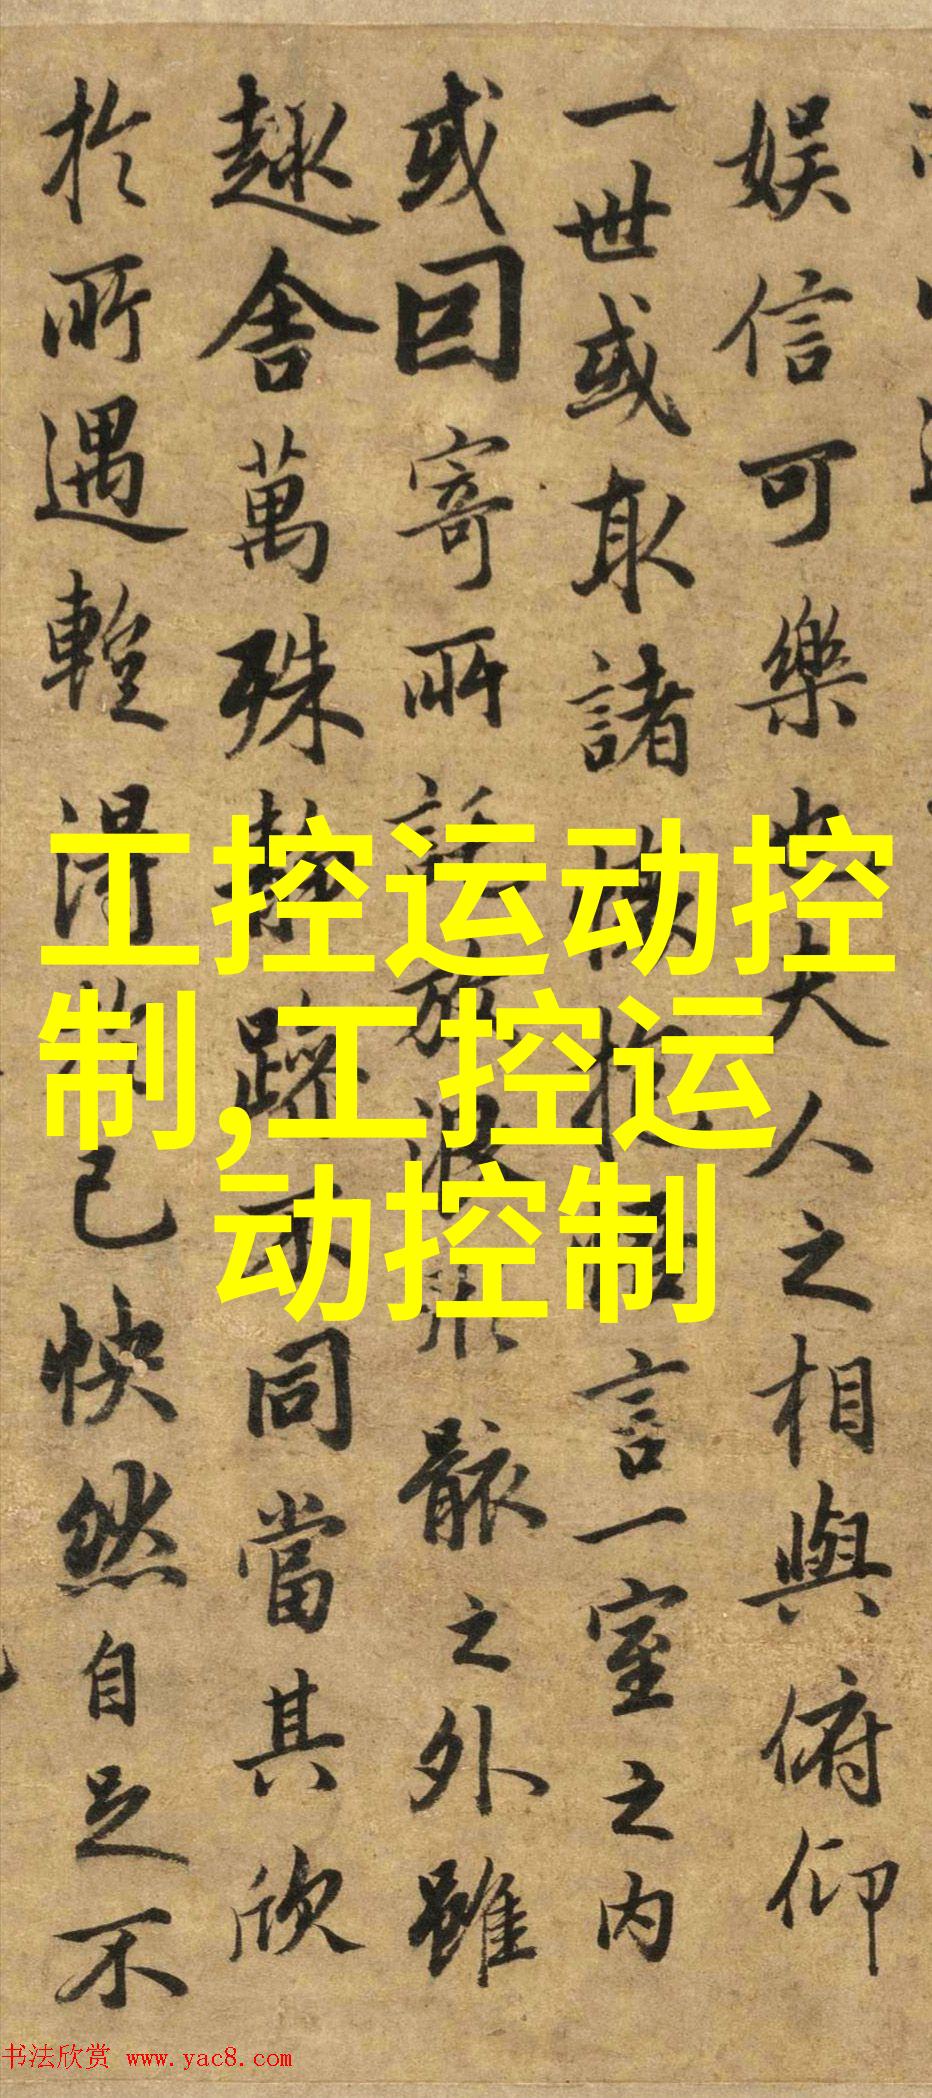 娱信可樂也夫人之相與俯仰
一世或取諸懷抱悟言一室之内
或因寄所託放浪形骸之外雖
趣舍萬殊静躁不同當其欣
於所遇蹔得於己怏然自足不
工控运动控
制,工控运
动控制
书法欣赏 www.yac8.com